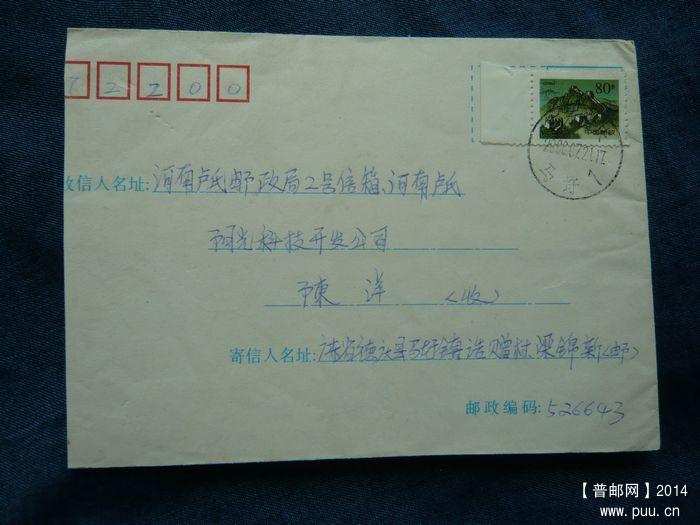 7 2 2 0 0
收信人名址:河南卢氏邮政局2号信箱、河南卢氏
阳光科技开发公司
陳 洋 (收)
寄信人名址:广东省德庆县马圩镇诰赠村 梁锦新(邮)
邮政编码:526643
80分
中国邮政
马圩
【普邮网】2014
www.puu.cn